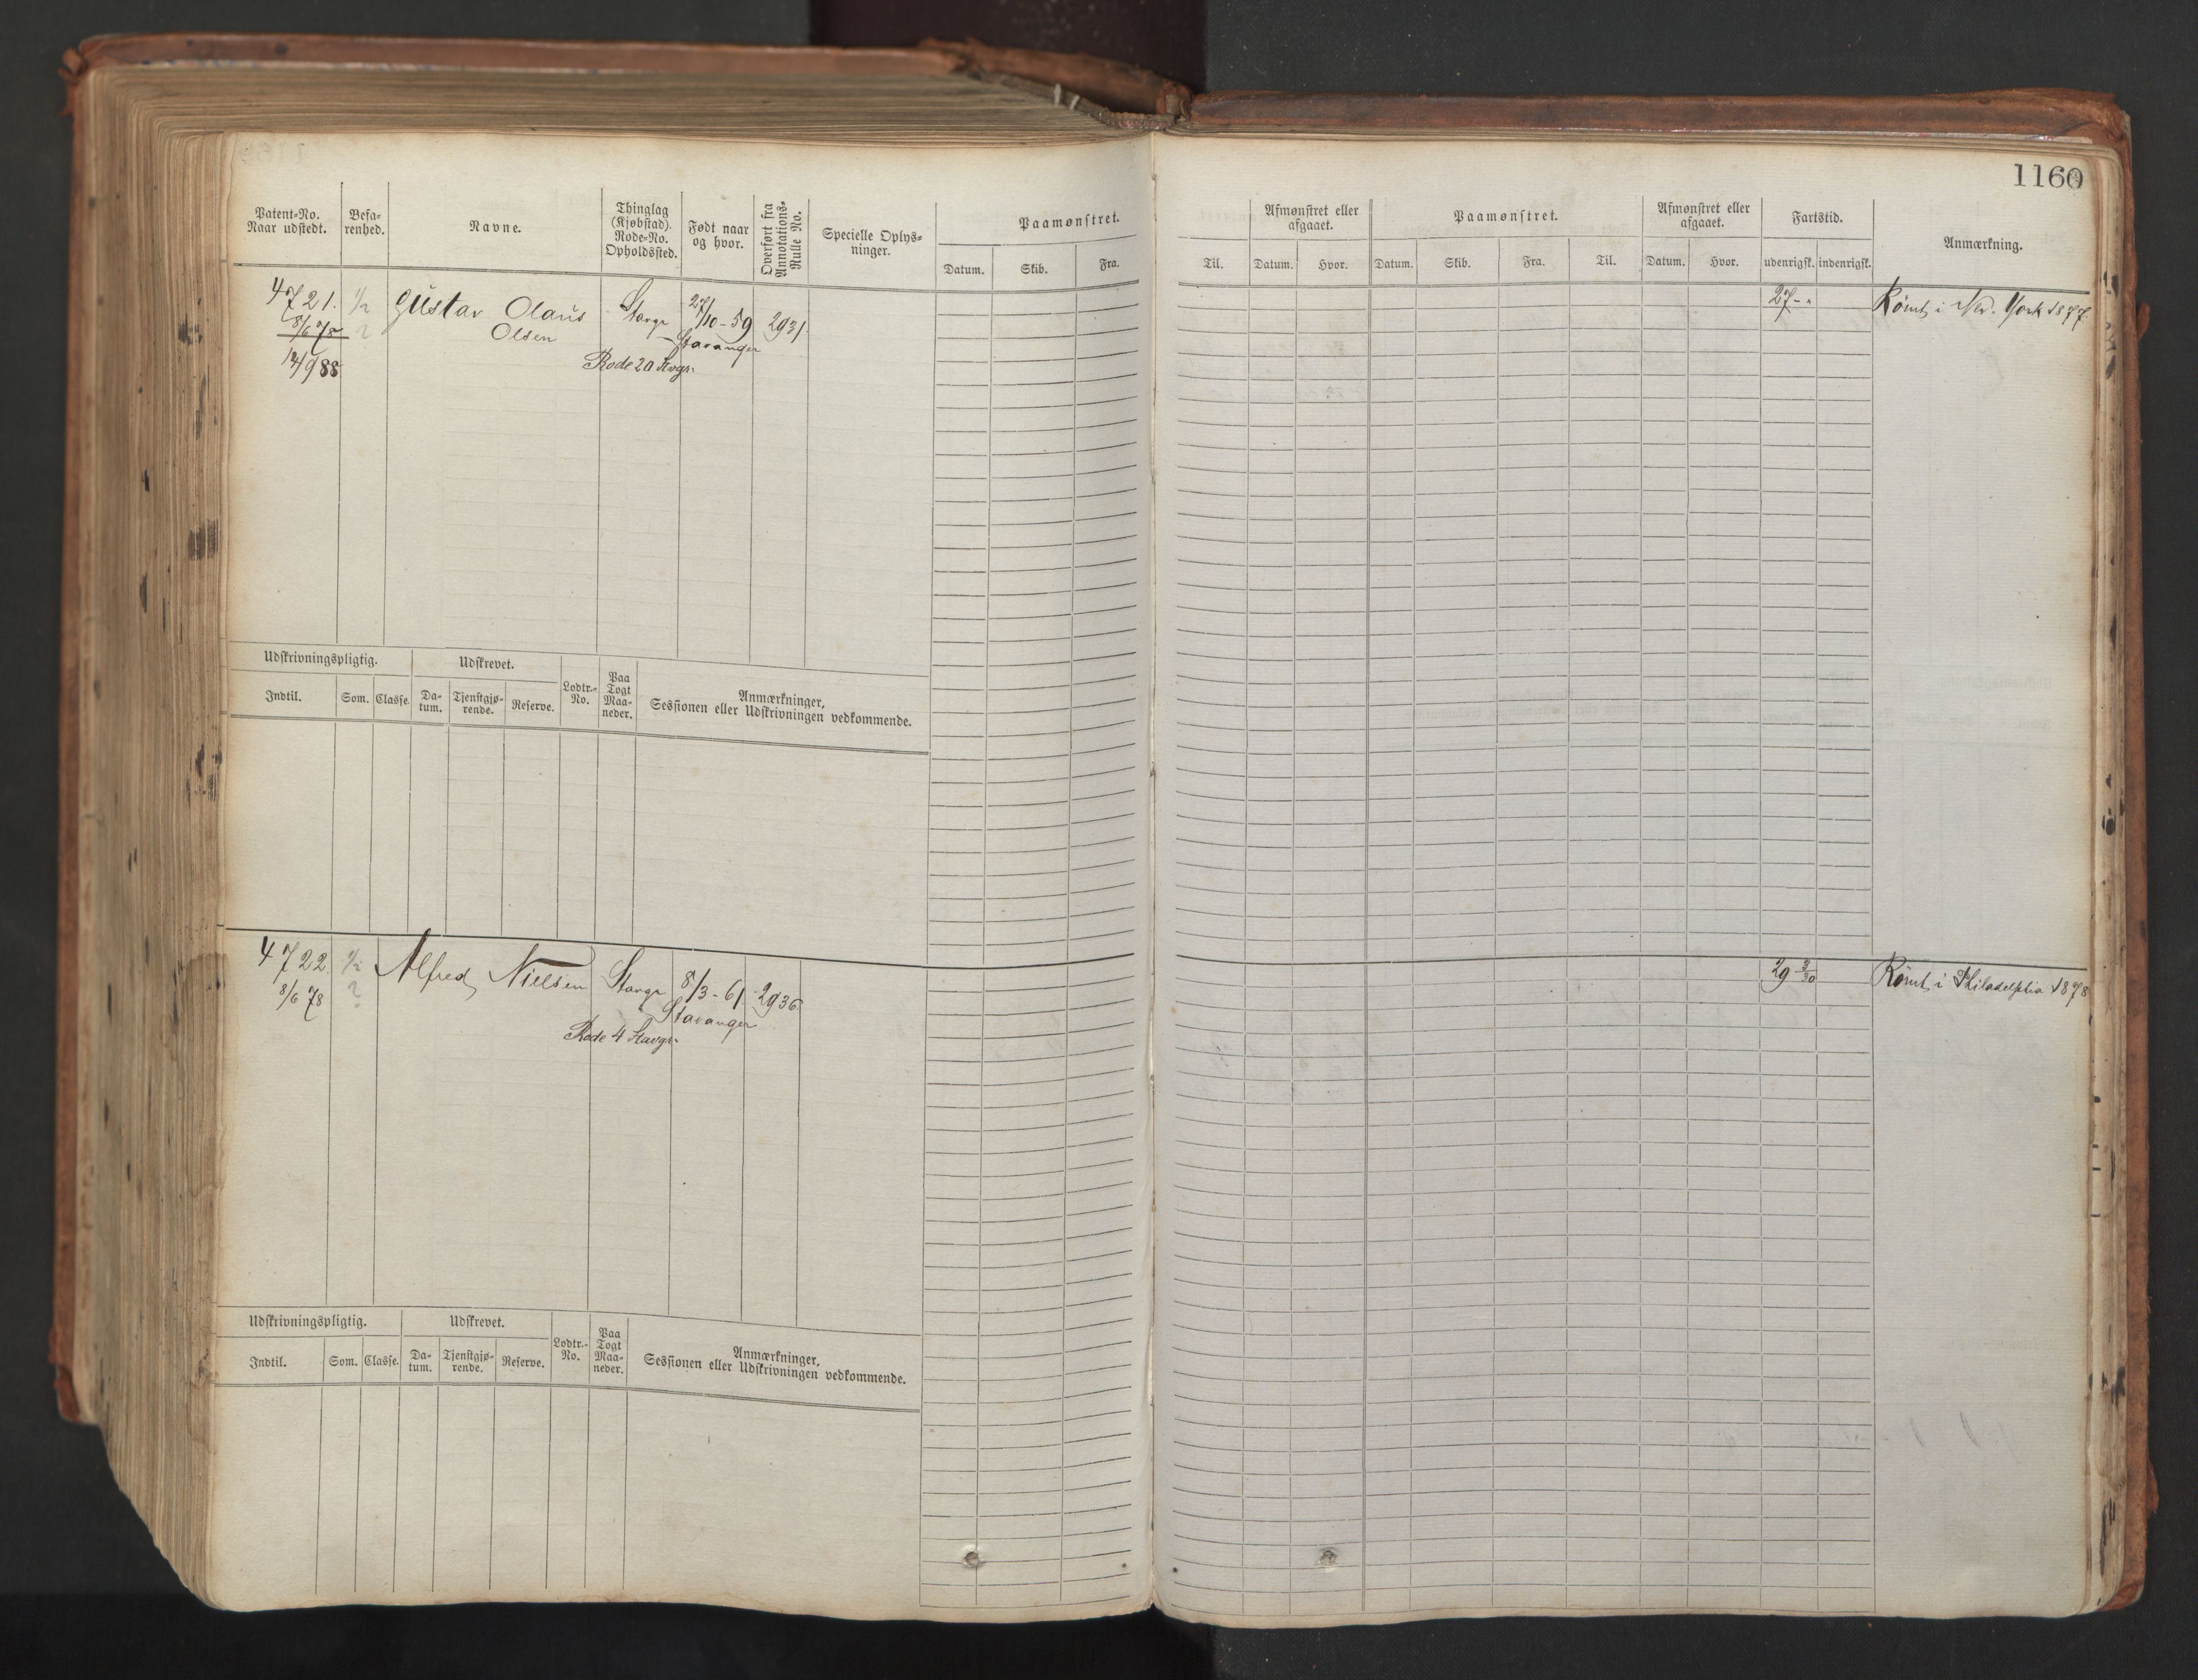 1160
Patent-No.
Naar udstedt.
Befa-
renhed.
Navne.
Thinglag
(Kjøbstad).
Rode-No.
Opholdssted.
Født naar
og hvor.
Overført fra
Annotations-
Rulle No.
Specielle Oplys-
ninger.
Paamønstret.
Datum.
Skib.
Fra.
Til.
Afmønstret eller
afgaaet.
Datum.
Hvor.
Paamønstret.
Datum.
Skib.
Fra.
Til.
Afmønstret eller
afgaaet.
Datum.
Hvor.
Fartstid.
udenrigsk.
indenrigsk.
Anmærkning.
4721.
8/6 78
12/9 88
1/2
Gustav Olaus
Olsen
Stavgr
27/10-59
Stavanger
2931
Rode 20 Stvgr.
27-"
Rømt i New York 1877.
Udskrivningspligtig.
Udskrevet.
Indtil.
Som.
Classe.
Da-
tum.
Tjenstgjø-
rende.
Reserve.
Lodtr.-
No.
Paa
Togt
Maa-
neder.
Anmærkninger,
Sessionen eller Udskrivningen vedkommende.
4722
8/6 78
1/2
?
Alfred Nielsen
Stavgr
8/3-61
Stavanger
2936
Rode 4 Stavgr.
29 3/30
Rømt i Philadelphia 1878
Udskrivningspligtig.
Udskrevet.
Indtil.
Som.
Classe.
Da-
tum.
Tjenstgjø-
rende.
Reserve.
Lodtr.-
No.
Paa
Togt
Maa-
neder.
Anmærkninger,
Sessionen eller Udskrivningen vedkommende.